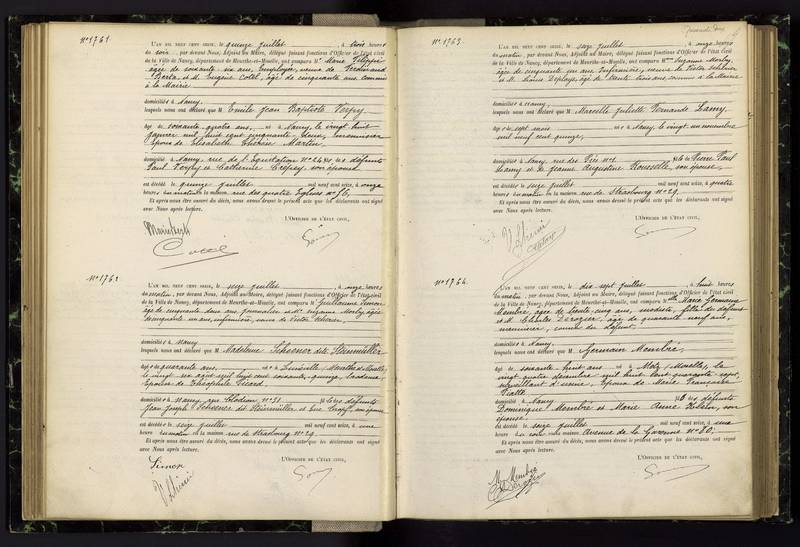 N° 1761.
L'AN MIL NEUF CENT SEIZE, le quinze juillet, à trois heures
du soir, par devant Nous, Adjoint au Maire, délégué faisant fonctions d'Officier de l'état civil
de la Ville de Nancy, département de Meurthe-et-Moselle, ont comparu Marie
âgée de soixante six ans, employée, veuve de Ferdinand
et M. Eugène Cottel, âgé de cinquante ans, commis
à la Mairie
domiciliés à Nancy,
lesquels nous ont déclaré que M. Emile Jean Baptiste Verpy
âgé de soixante quatre ans, né à Nancy, le vingt huit
janvier mil huit cent cinquante deux,
époux de Elisabeth Thérèse Martin,
domicilié à Nancy, rue de l'Equitation N° 24 fils des défunts
Paul Verpy et Catherine Crépey, son épouse
est décédé le quinze juillet mil neuf cent seize, à onze
heures du matin en la maison, rue des quatre Eglises N° 56,
Et après nous être assuré du décès, nous avons dressé le présent acte que les déclarants ont signé
avec Nous après lecture.
L'OFFICIER DE L'ÉTAT CIVIL,
N° 1762
L'AN MIL NEUF CENT SEIZE, le seize juillet, à onze heures
du matin, par devant Nous, Adjoint au Maire, délégué faisant fonctions d'Officier de l'état civil
de la Ville de Nancy, département de Meurthe-et-Moselle, ont comparu M. Guillaume Simon
âgé de cinquante deux ans, journalier et Me Suzanne Morly, âgée
de cinquante un ans, infirmière, veuve de Victor
domiciliés à Nancy
lesquels nous ont déclaré que M Madeleine Schoener dite Steinmüller
âgée de quarante ans, née à Lunéville (Meurthe et Moselle),
le vingt six août mil huit cent soixante quinze,
épouse de Théophile Gérard,
domiciliée à Nancy, rue Clodion N° 31, fille des défunts
Jean Joseph Schoener dit Steinmüller et Eve son épouse
est décédée le seize juillet mil neuf cent seize, à une
heure du matin en la maison rue de Strasbourg N° 29
Et après nous être assuré du décès, nous avons dressé le présent acte que les déclarants ont signé
avec Nous après lecture.
L'OFFICIER DE L'ÉTAT CIVIL,
Simon
N° 1763.
L'AN MIL NEUF CENT SEIZE, le seize juillet, à onze heures
du matin, par devant Nous, Adjoint au Maire, délégué faisant fonctions d'Officier de l'état civil
de la Ville de Nancy, département de Meurthe-et-Moselle, ont comparu Me Suzanne Morly,
âgée de cinquante un ans, infirmière, veuve de Victor
et M. âgé de trente trois ans, commis à la Mairie
domiciliés à Nancy,
lesquels nous ont déclaré que M Marcelle Juliette Fernande Lamy
âgée de sept mois née à Nancy, le vingt un novembre
mil neuf cent quinze,
domiciliée à Nancy, rue des N° 1 fille de Pierre Paul
Lamy et de Jeanne Augustine Rousselle, son épouse,
est décédée le seize juillet mil neuf cent seize, à quatre
heures du matin en la maison rue de Strasbourg N° 29.
Et après nous être assuré du décès, nous avons dressé le présent acte que les déclarants ont signé
avec Nous après lecture.
L'OFFICIER DE L'ÉTAT CIVIL,
N° 1764.
L'AN MIL NEUF CENT SEIZE, le dix sept juillet, à huit heures
du matin, par devant Nous, Adjoint au Maire, délégué faisant fonctions d'Officier de l'état civil
de la Ville de Nancy, département de Meurthe-et-Moselle, ont comparu Melle Marie Germaine
Membré, âgée de trente cinq ans, modiste, fille du défunt
et M. Charles âgé de quarante neuf ans,
menuisier, cousin du défunt,
domiciliés à Nancy,
lesquels nous ont déclaré que M. Germain Membré,
âgé de soixante huit ans né à Metz (Moselle), le
vingt quatre décembre mil huit cent quarante sept,
surveillant d'usine, époux de Marie Françoise
domicilié à Nancy fils des défunts
Dominique Membré et Marie Anne son
épouse,
est décédé le seize juillet mil neuf cent seize, à une
heure du soir en la maison, Avenue de la Garenne N° 80,
Et après nous être assuré du décès, nous avons dressé le présent acte que les déclarants ont signé
avec Nous après lecture.
L'OFFICIER DE L'ÉTAT CIVIL,
M. Membré